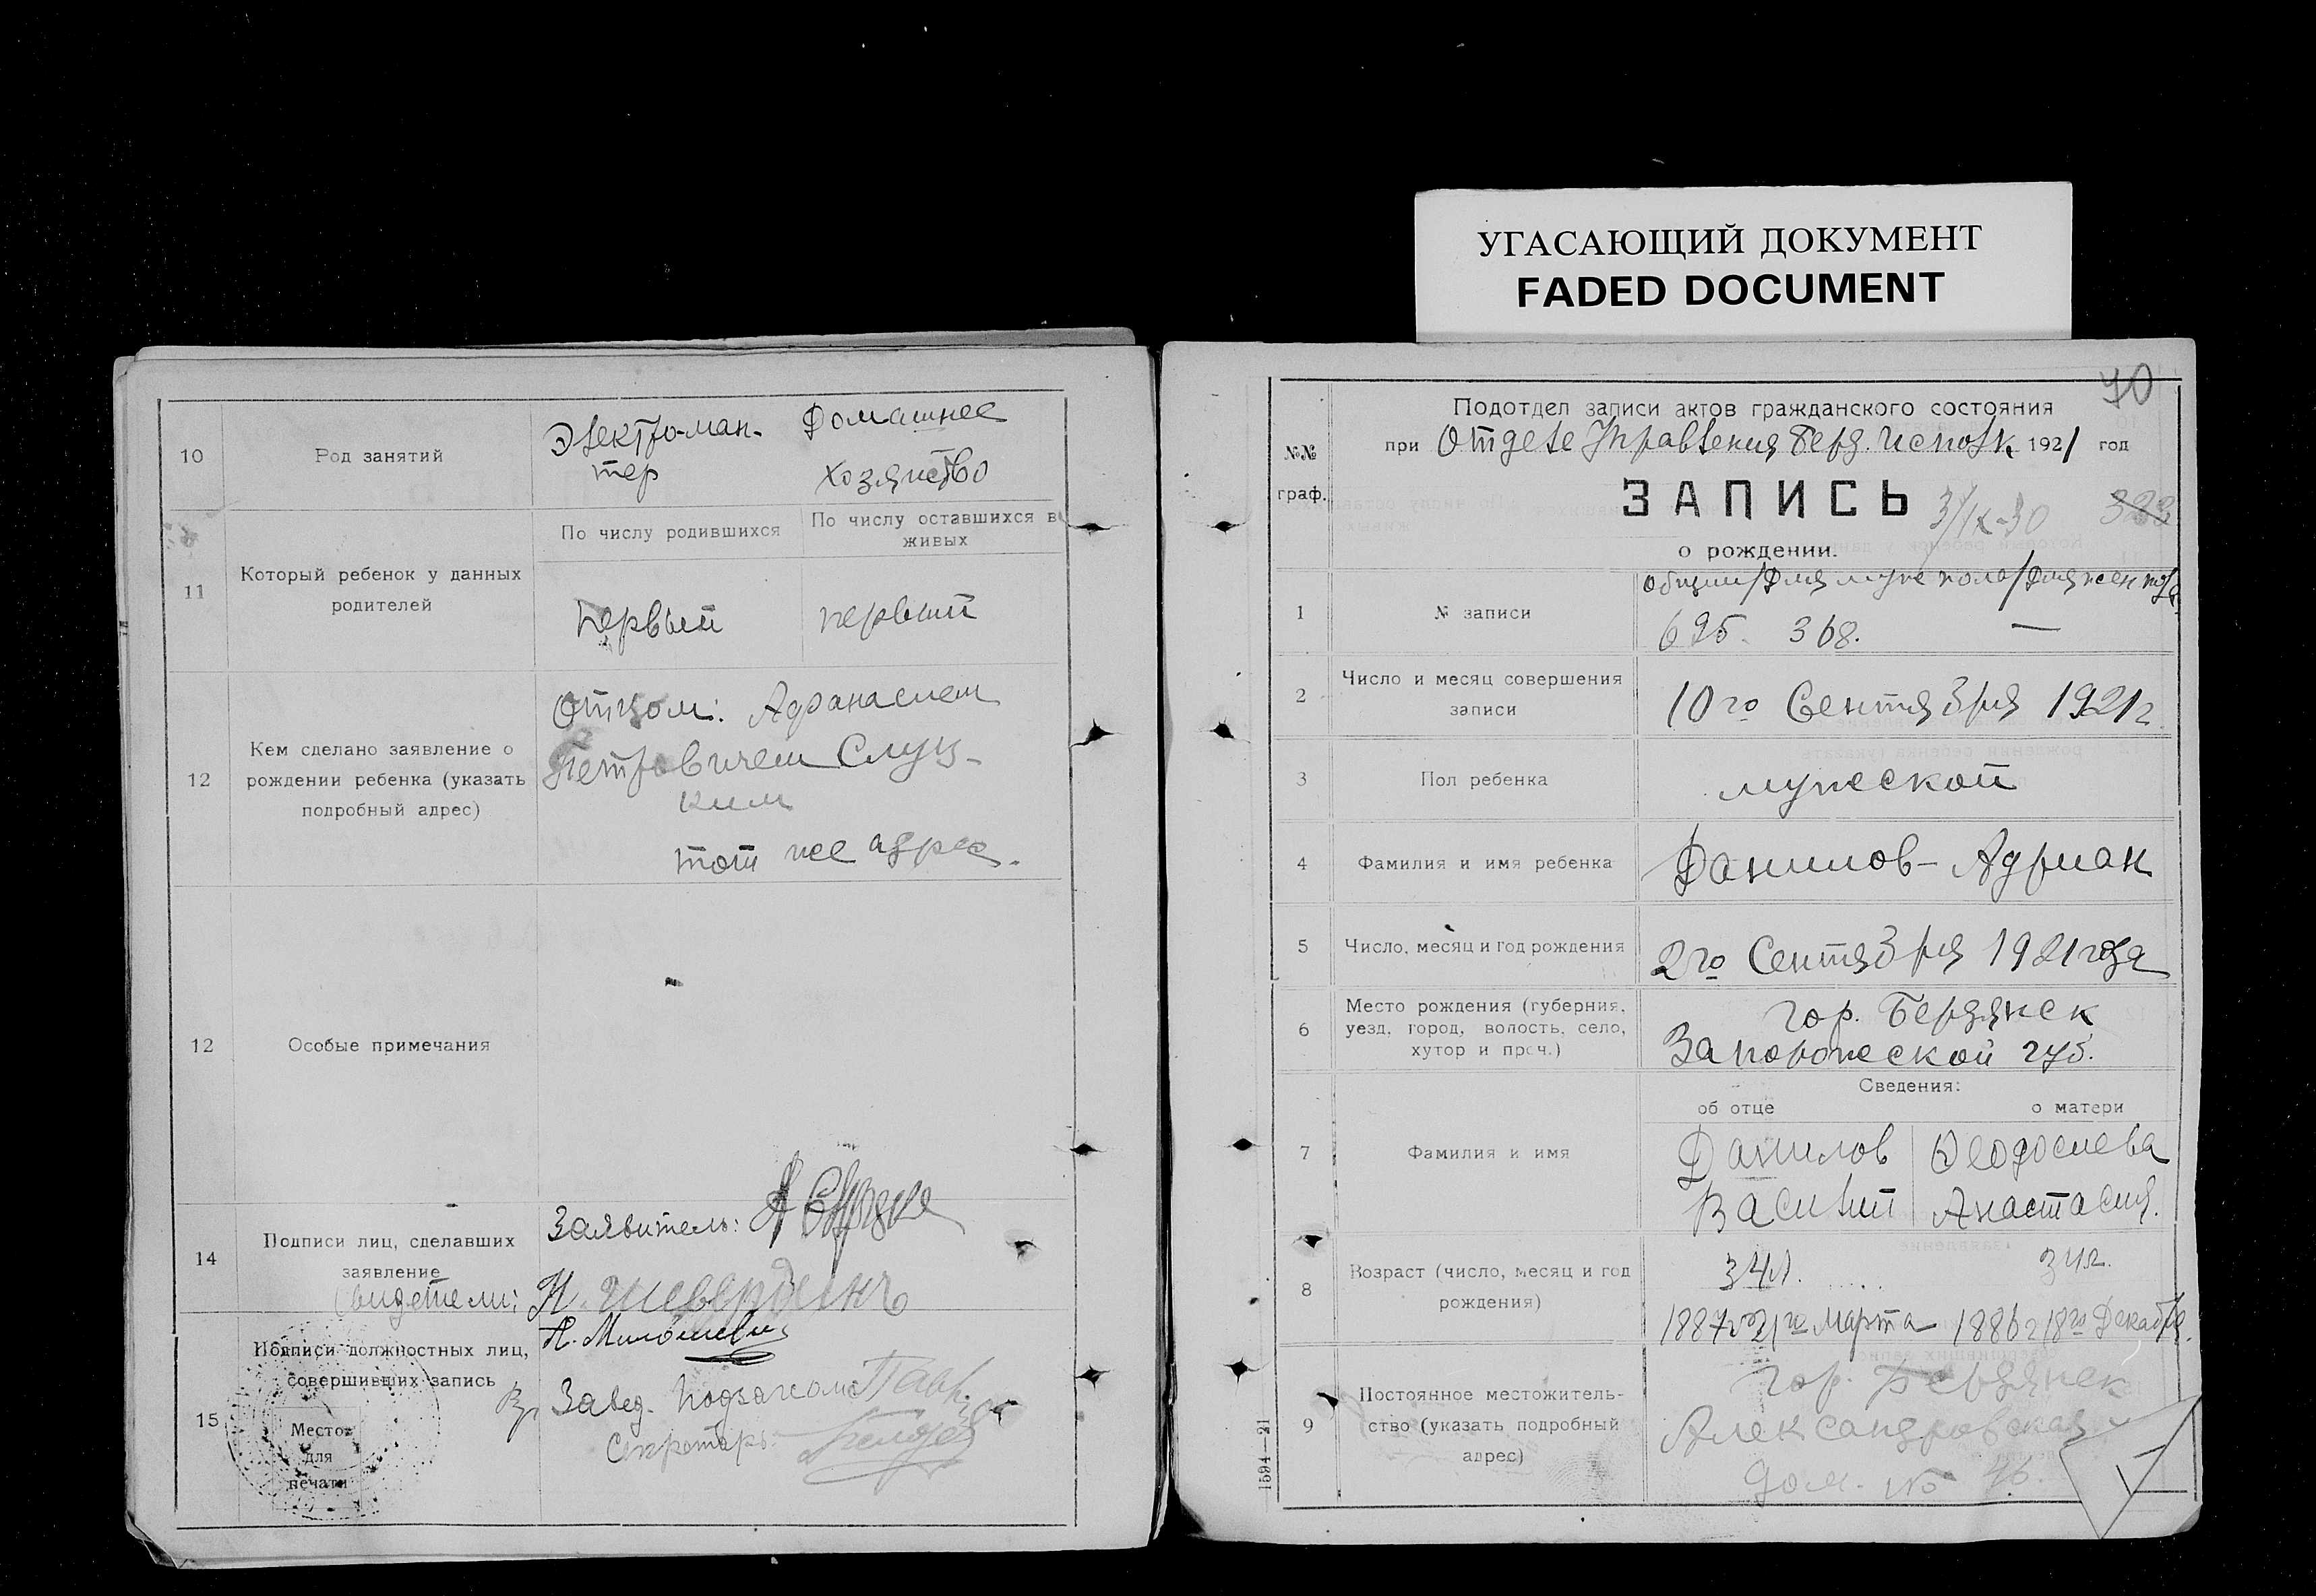 УГАСАЮЩИЙ ДОКУМЕНТ
FADED DOCUMENT
10
Род занятий
Электро-ман-
тер
Домашнее
хозяйство
11
Который ребенок у данных
родителей
По числу родившихся
По числу оставшихся в
живых
первый
первый
12
Кем сделано заявление о
рождении ребенка (указать
подробный адрес)
Отцом: Афанасием
Петровичем Слуц-
ким
тот же адрес.
12
Особые примечания
14
Подписи лиц, сделавших
заявление
свидетели:
Заявитель: А
Н.
15
Подписи должностных лиц,
совершивших запись
Место
для
печати
Завед. Подзагсом
Секретарь
70
№№
граф.
Подотдел записи актов гражданского состояния
при Отделе Управления Берд. Исполк. 1921 год
ЗАПИСЬ
3/IX-30
323
о рождении.
1
№ записи
общий/для муж пола/для жен пола
695. 368. —
2
Число и месяц совершения
записи
10го Сентября 1921г.
3
Пол ребенка
мужеской
4
Фамилия и имя ребенка
Данилов - Адриан
5
Число, месяц и год рождения
2го Сентября 1921 года
6
Место рождения (губерния,
уезд, город, волость, село,
хутор и проч.)
гор. Бердянск
Запорожеской губ.
Сведения:
об отце
о матери
7
Фамилия и имя
Данилов
Василий
Феодосиева
Анастасия.
8
Возраст (число, месяц и год
рождения)
34 л.
34 л.
1887го 21го Марта
1886 г 18го Декабря.
9
Постоянное местожитель-
ство (указать подробный
адрес)
гор. Бердянск
Александровская
дом. №
1594—21